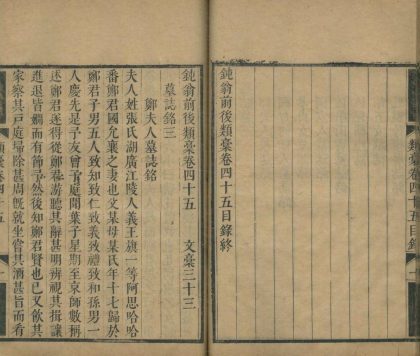 類稾卷四十五目錄
鈍翁前後類稾卷四十五目錄終
鈍翁前後類稾卷四十五　文稾三十三
墓誌銘三
鄭夫人墓誌銘
夫人姓張氏湖廣江陵人義王旗一等阿思哈哈
番鄭君國允襄之妻也父某母某氏年十七歸於
鄭君子男五人致知致仁致義致禮致和孫男一
人慶先是予友曾庭聞葉子星期至京師數稱
述鄭君遂得從鄭君游聽其辭甚明辨視其揖讓
進退皆嫺而有節予然後知鄭君賢也已又飲其
家察其戶庭埽除甚周旣就坐嘗其酒甚旨而肴
類稾卷四十五
一